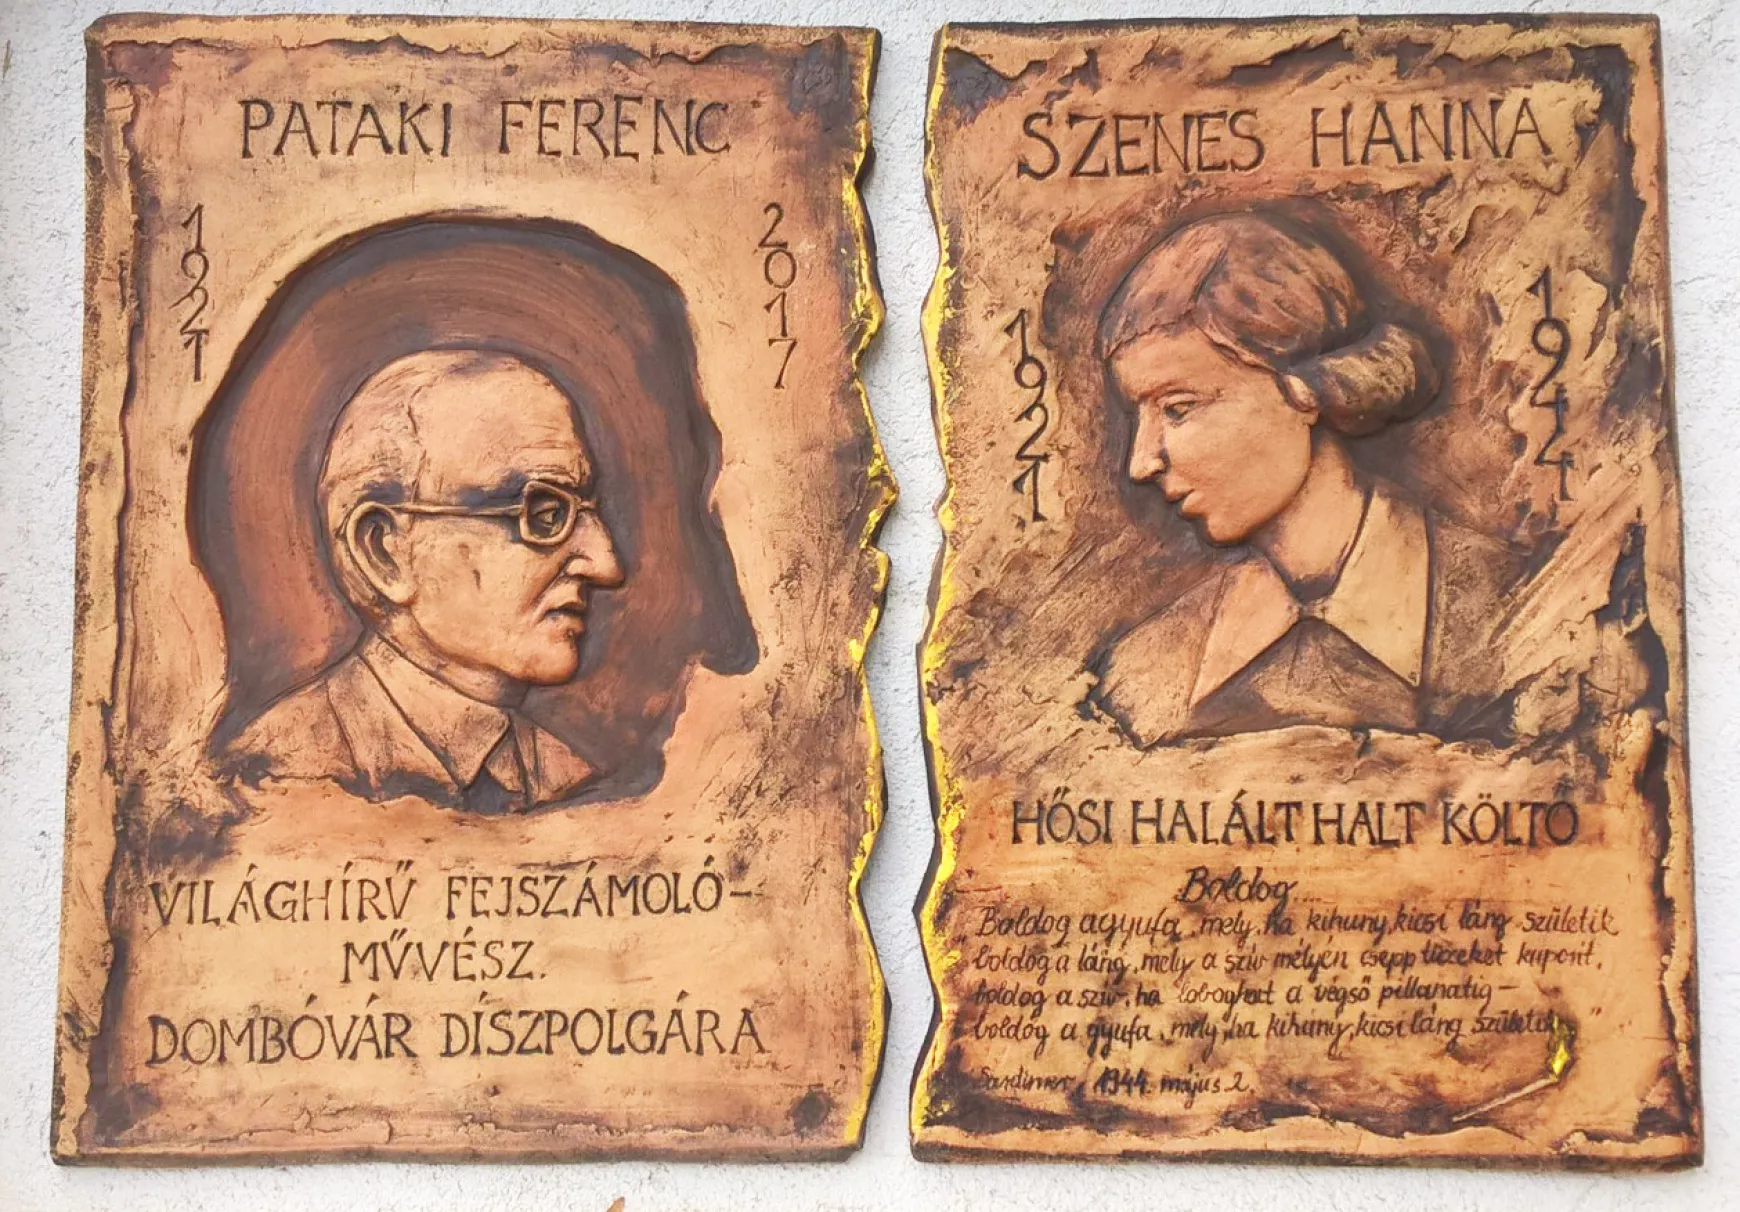 PATAKI FERENC
1921
2017
VILÁGHÍRŰ FEJSZÁMOLÓ-
MŰVÉSZ.
DOMBÓVÁR DÍSZPOLGÁRA
SZENES HANNA
1921
1944
HŐSI HALÁLT HALT KÖLTŐ
Boldog...
"Boldog a gyufa, mely, ha kihuny, kicsi láng születik
boldog a láng, mely a szív mélyén csepp tüzeket kapott.
boldog a szív, ha loboghat a végső pillanatig-
boldog a gyufa, mely, ha kihuny, kicsi láng születik"
1944. május 2.